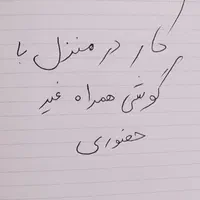 کار در منزل با
گوشی همراه غیر
حضوری